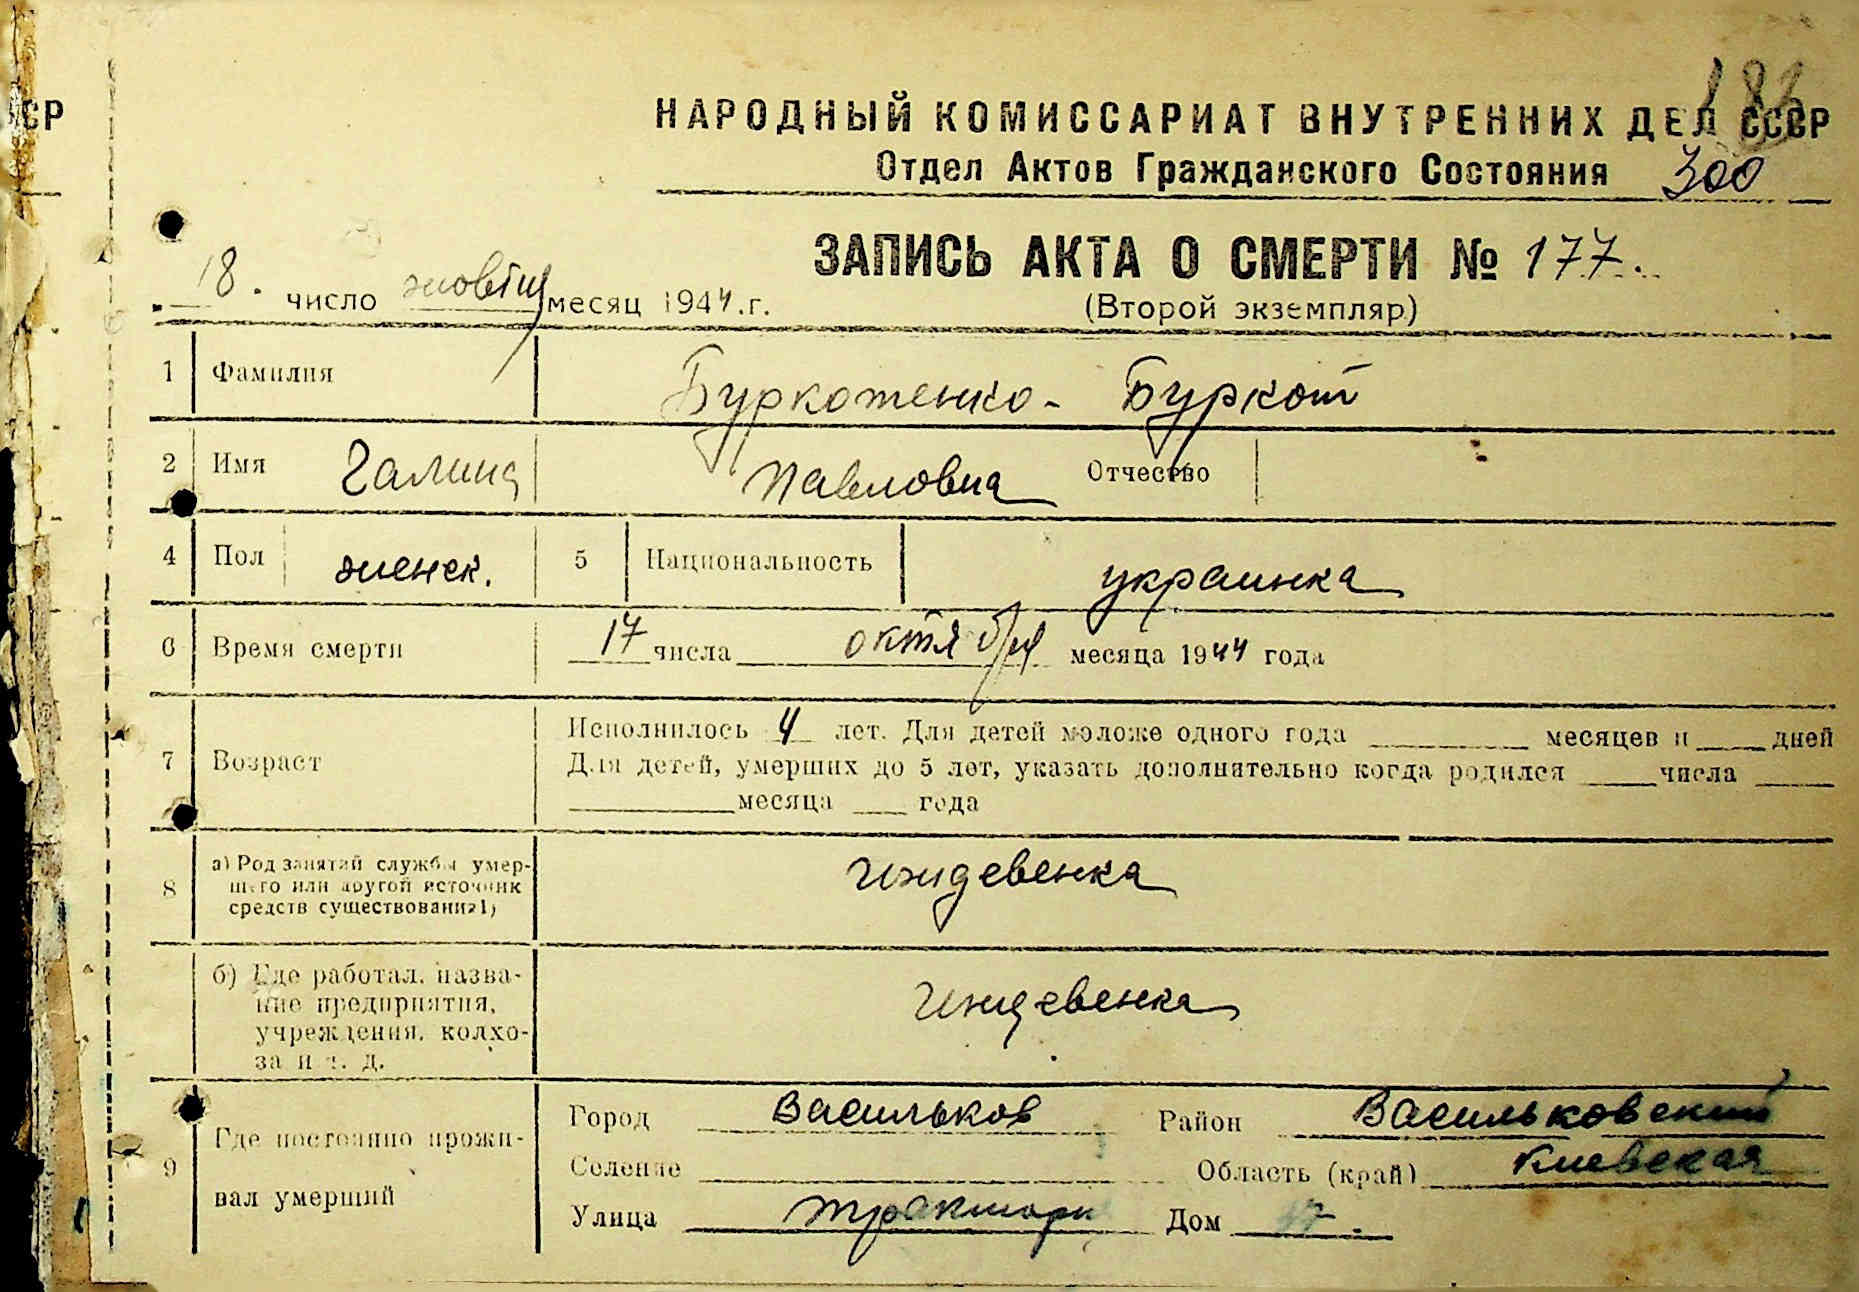 ССР
181
НАРОДНЫЙ КОМИССАРИАТ ВНУТРЕННИХ ДЕЛ СССР
Отдел Актов Гражданского Состояния 300
ЗАПИСЬ АКТА О СМЕРТИ № 177.
18. число жовтня месяц 1944.г.
(Второй экземпляр)
1 Фамилия Буркотенко - Буркот
2 Имя Галина Павловна Отчество
4 Пол женск. 5 Национальность украинка
6 Время смерти 17 числа октября месяца 1944 года
7 Возраст
Исполнилось 4 лет. Для детей моложе одного года месяцев и дней
Для детей, умерших до 5 лет, указать дополнительно когда родился числа
месяца года
8 а) Род занятий службы умер-
шего или другой источник
средств существования 1)
иждевенка
б) Где работал, назва-
ние предприятия,
учреждения, колхо-
за и т. д.
иждевенка
9 Где постоянно прожи-
вал умерший
Город Васильков Район Васильковский
Селение Область (край) Киевская
Улица Дом 17.